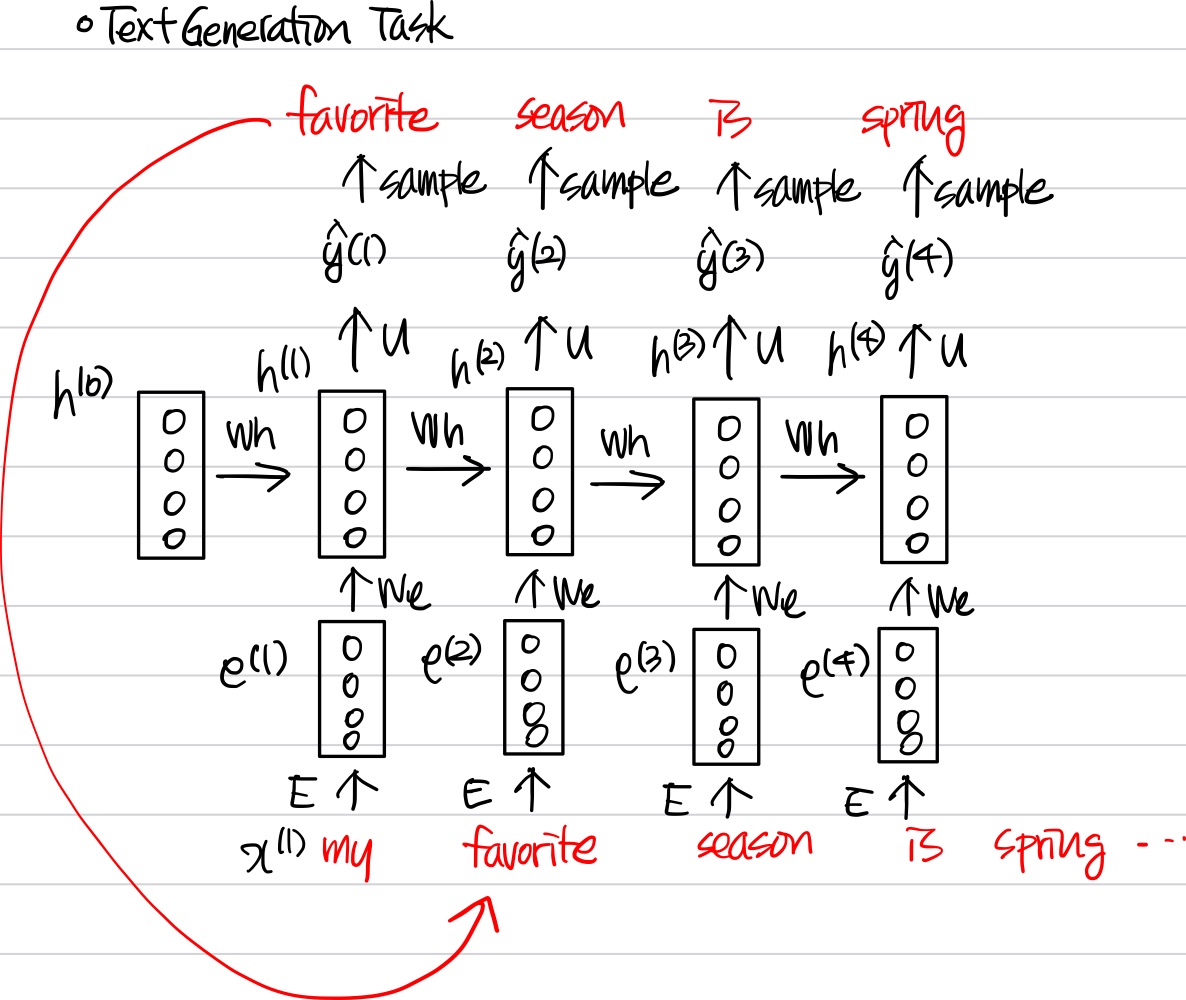 • Text Generation Task
favorite season is spring
↑ sample ↑ sample ↑ sample ↑ sample
ŷ(1) ŷ(2) ŷ(3) ŷ(4)
↑ U ↑ U ↑ U ↑ U
h(0) h(1) h(2) h(3) h(4)
Wh Wh Wh Wh
↑ We ↑ We ↑ We ↑ We
e(1) e(2) e(3) e(4)
E ↑ E ↑ E ↑ E ↑
x(1) my favorite season is spring ...